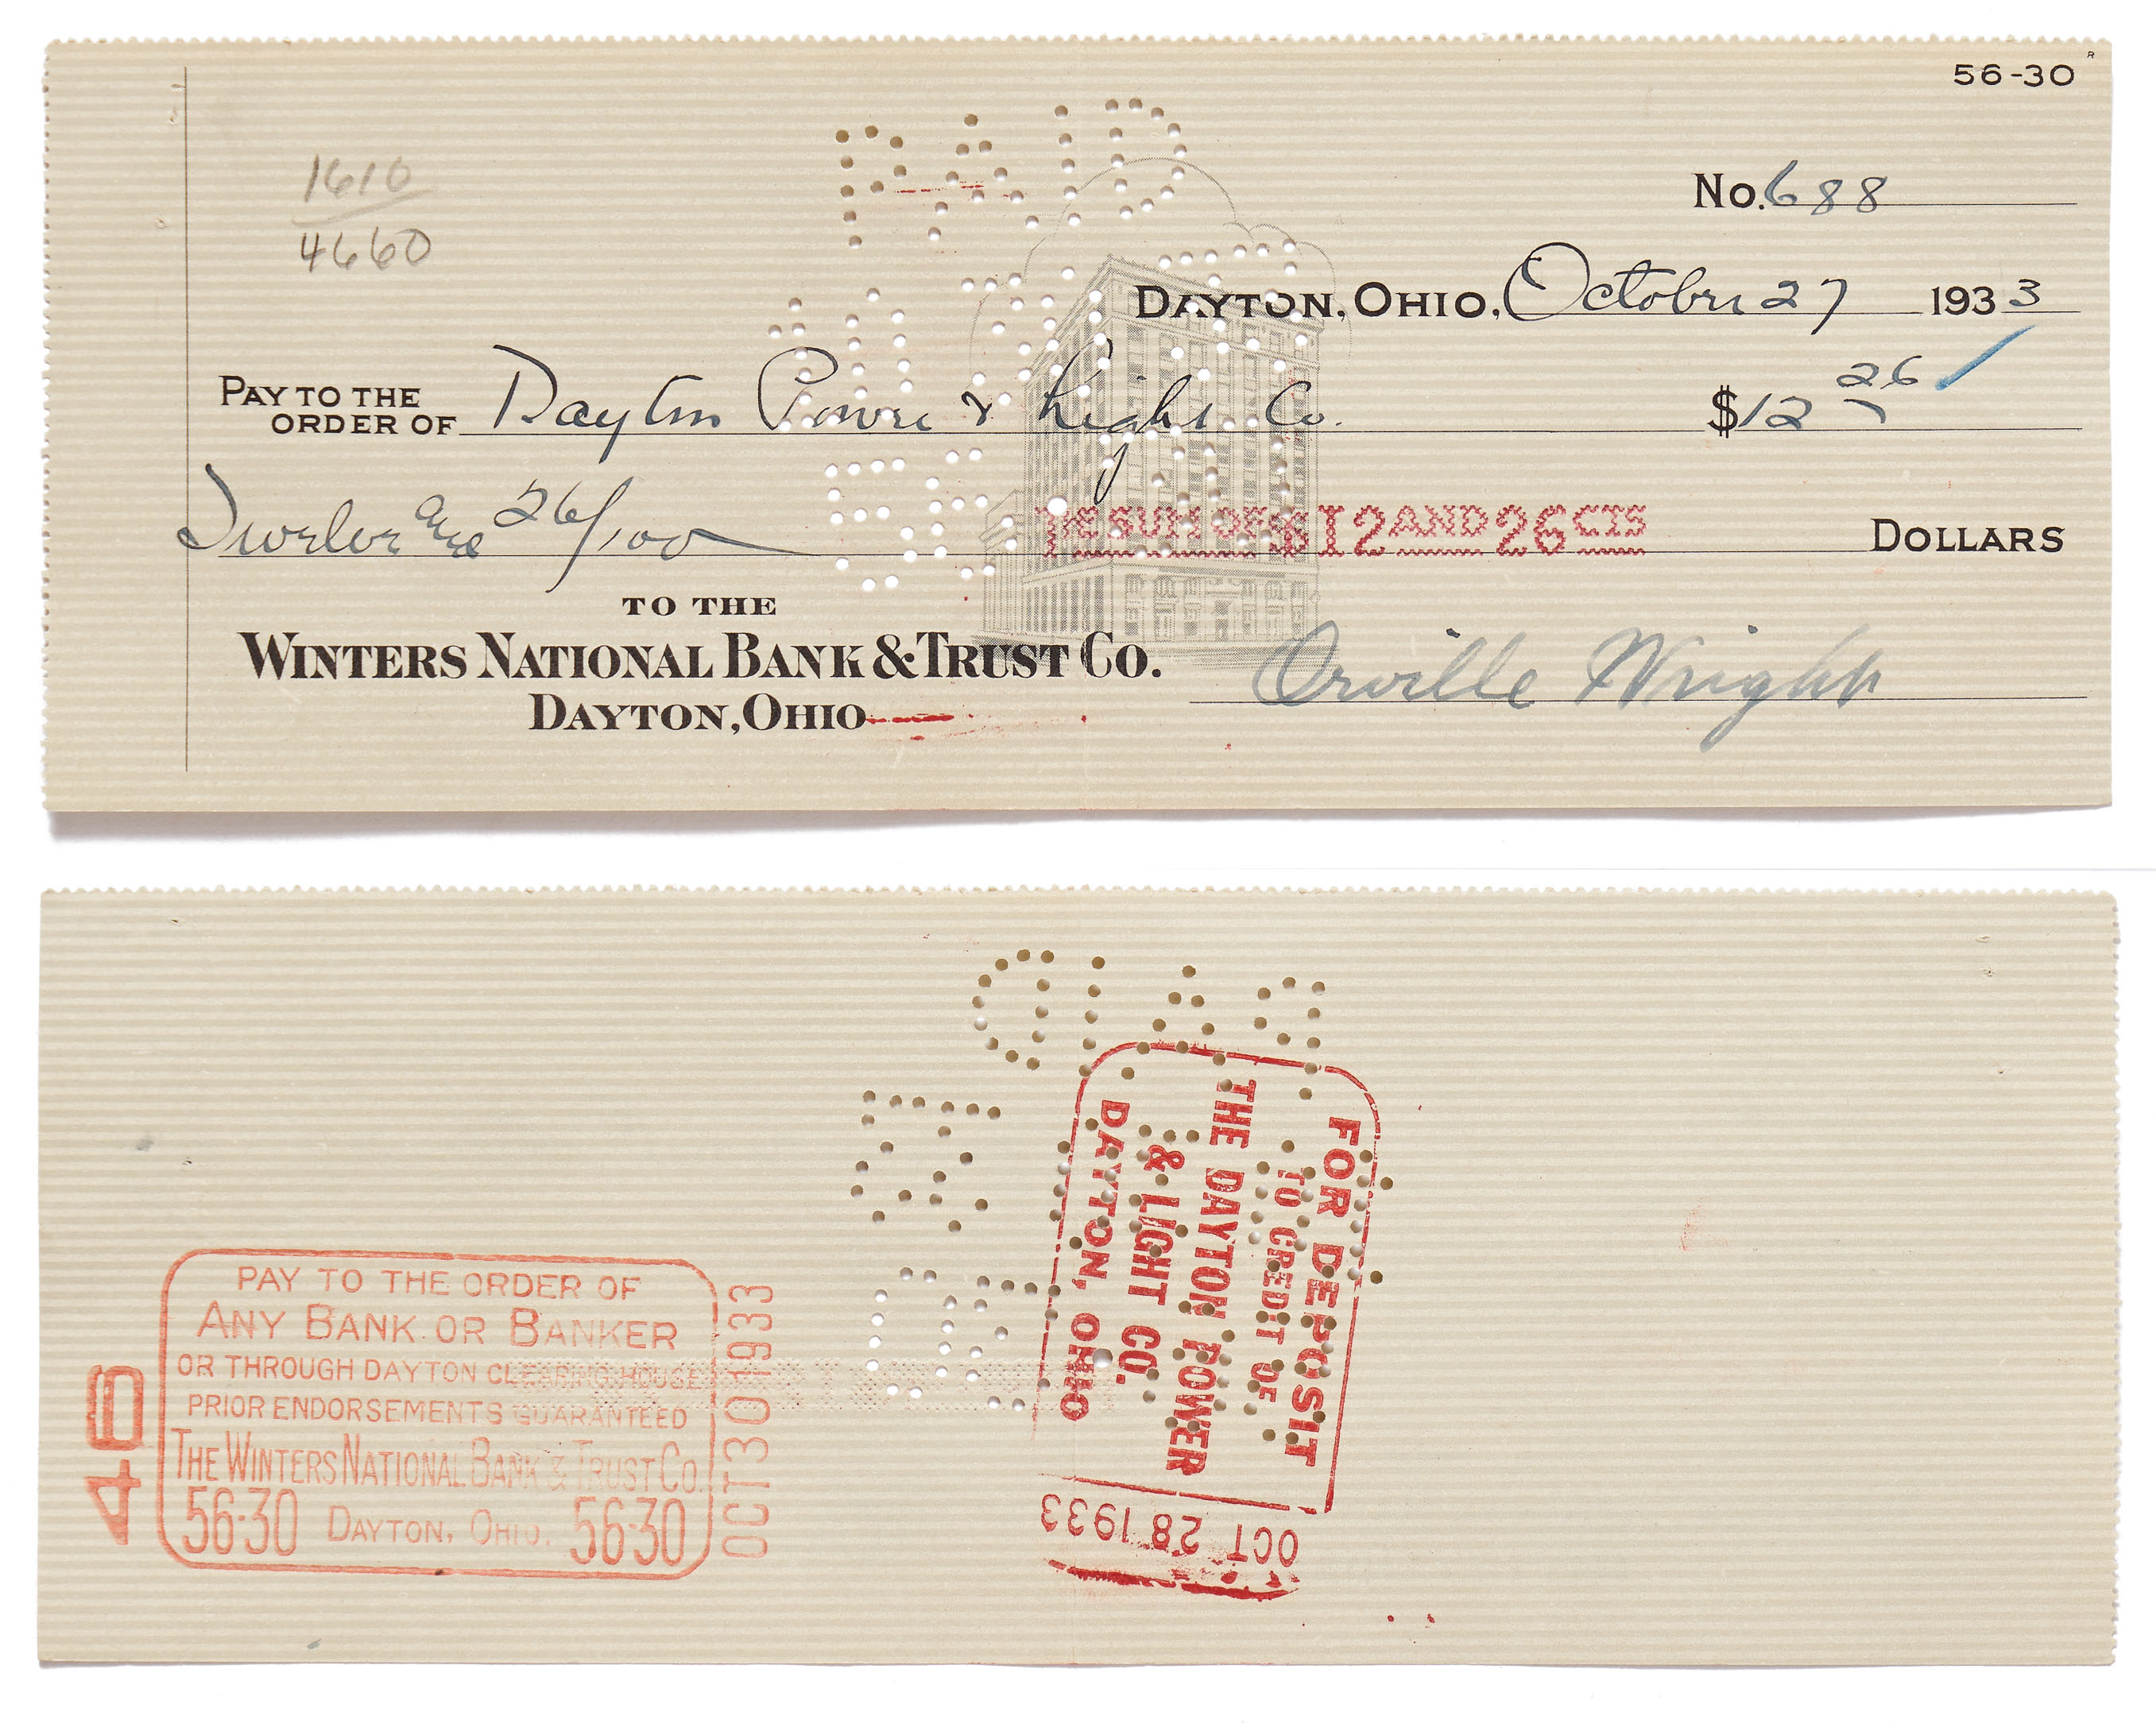 56-30
1610
4660
No. 688
DAYTON, OHIO, October 27 1933
PAY TO THE ORDER OF Dayton Power & Light Co. $12 26
Twelve and 26/100 THE SUM OF $12 AND 26 CTS DOLLARS
TO THE
WINTERS NATIONAL BANK & TRUST CO.
DAYTON, OHIO
Orville Wright
PAID
FOR DEPOSIT
TO CREDIT OF
THE DAYTON POWER
& LIGHT CO.
DAYTON, OHIO
OCT 28 1933
PAY TO THE ORDER OF
ANY BANK OR BANKER
OR THROUGH DAYTON CLEARING HOUSE
PRIOR ENDORSEMENTS GUARANTEED
THE WINTERS NATIONAL BANK & TRUST CO.
56-30 DAYTON, OHIO. 56-30
OCT 30 1933